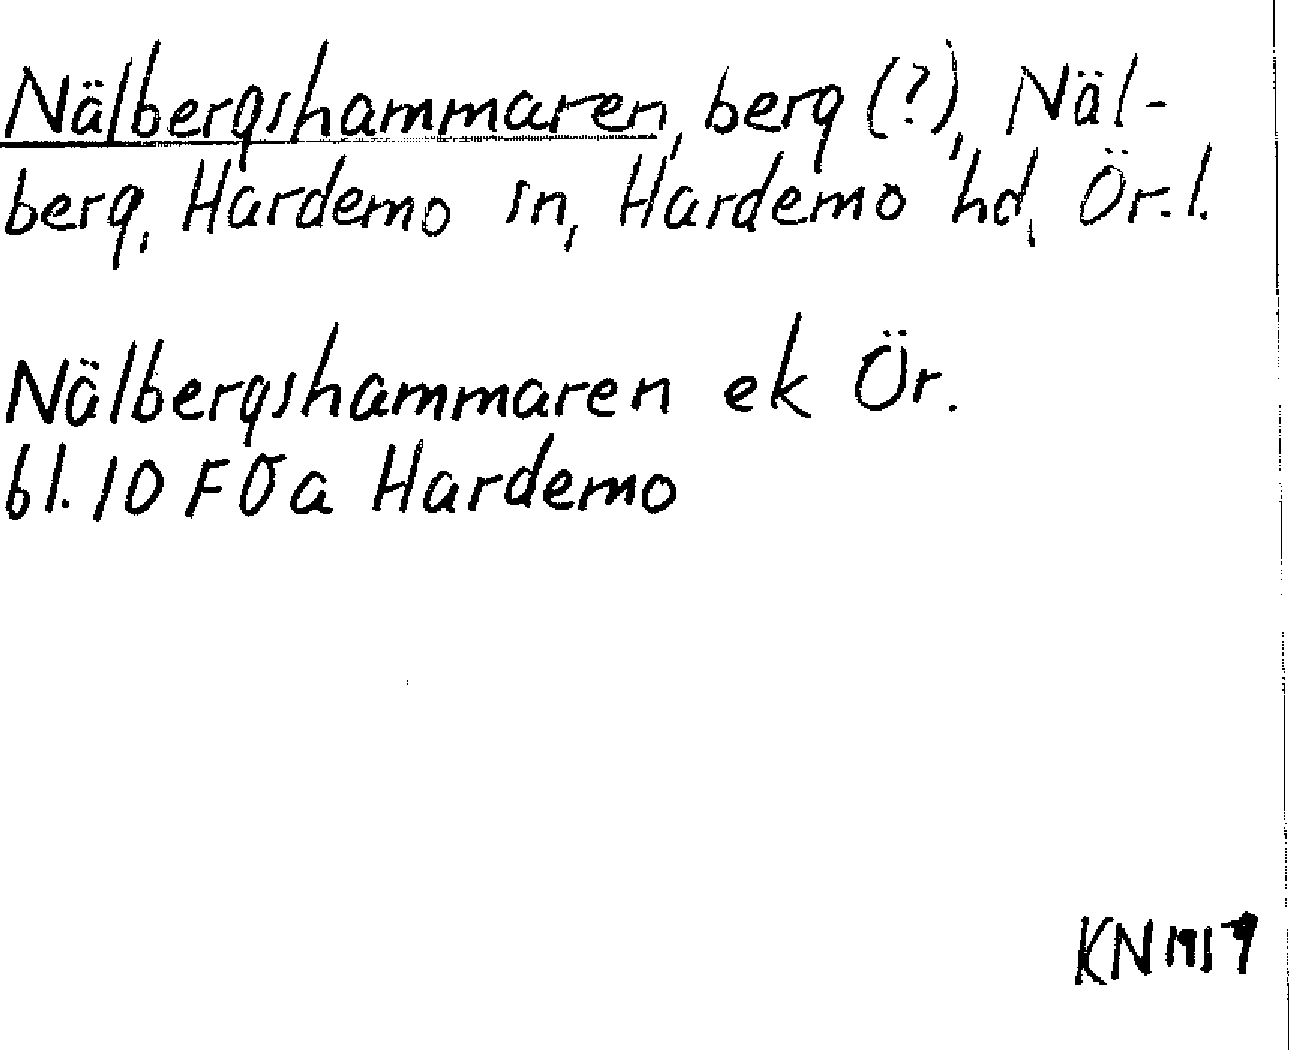 Nälbergshammaren, berg (?), Näl-
berg, Hardemo sn, Hardemo hd, Ör. l.
Nälbergshammaren ek Ör.
bl. 10 F 0 a Hardemo
KN